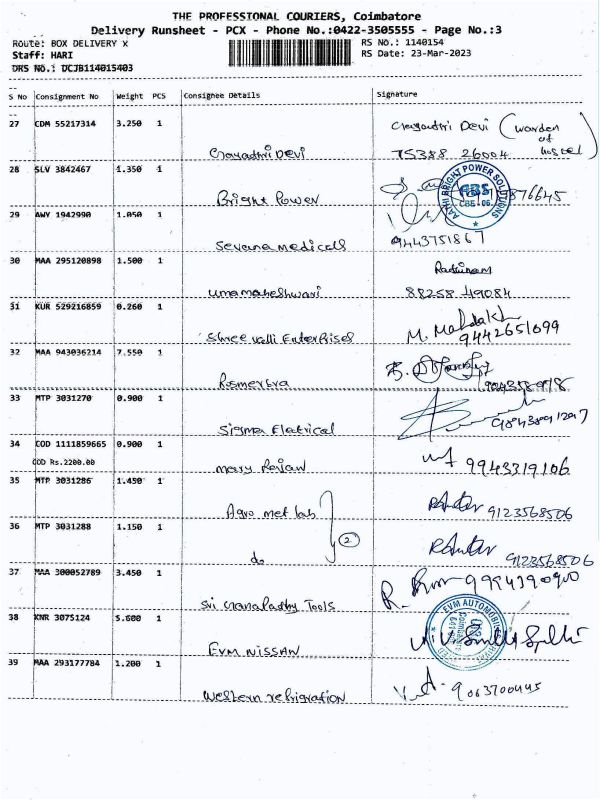 THE PROFESSIONAL COURIERS, Coimbatore
Delivery Runsheet - PCX - Phone No.:0422-3505555 - Page No.:3
Route: BOX DELIVERY X
RS No.: 1140154
Staff: HARI
RS Date: 23-Mar-2023
DRS No.: DCJB114015403
S No Consignment No Weight PCS Consignee Details Signature
27 CDM 55217314 3.250 1 Gayathri Devi
Gayathri Devi (warden of hostel)
75388 26004
28 SLV 3842467 1.350 1 Bright Power
AATHI BRIGHT POWER SOLUTIONS
ABS
CBE 06.
29 AWY 1942990 1.050 1 Sevana medicals
9443751867
30 MAA 295120898 1.500 1 Umamaheshwari
88258 49084
31 KUR 529216859 0.260 1 Shree valli Enterprises
9442651099
32 MAA 943036214 7.550 1
33 MTP 3031270 0.900 1 Sigma Eletrical
34 COD 1111859665 0.900 1 mary Rajan
COD Rs.2200.00
9943319106
35 MTP 3031286 1.450 1 Agro met lab
9123568506
2
36 MTP 3031288 1.150 1 do
9123568506
37 MAA 300052789 3.450 1 Sri Tools
38 KNR 3075124 5.600 1 EVM NISSAN
EVM AUTOMOBILE
39 MAA 293177784 1.200 1 Western refrigration
9063700445